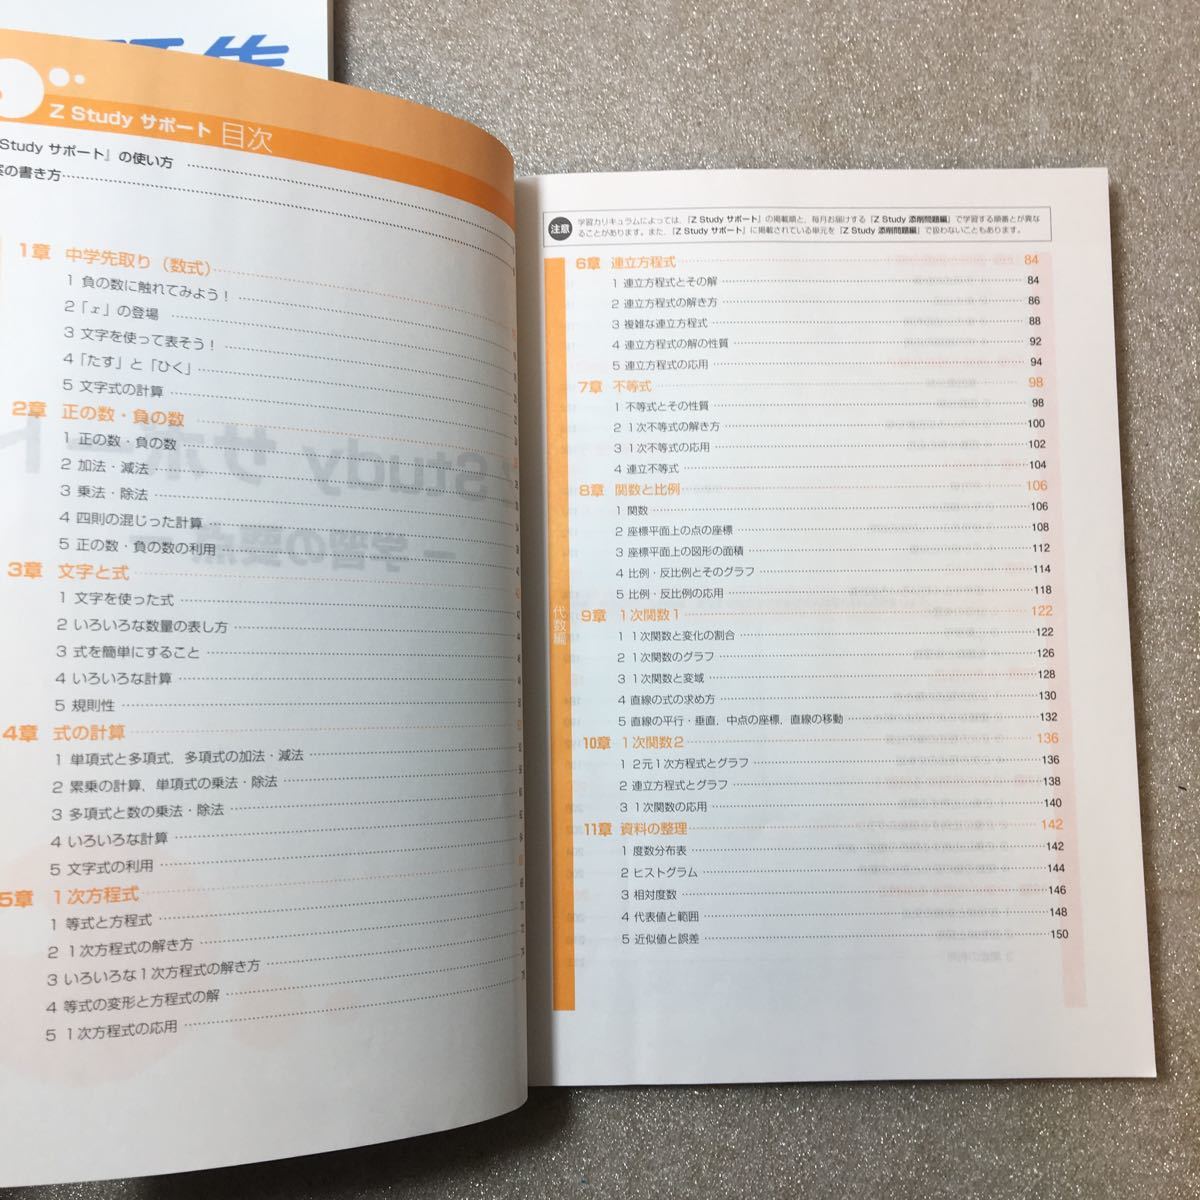 Z Study サポート 目次
Study サポート』の使い方
の書き方
1章 中学先取り（数式）
1 負の数に触れてみよう！
2「x」の登場
3 文字を使って表そう！
4「たす」と「ひく」
5 文字式の計算
2章 正の数・負の数
1 正の数・負の数
2 加法・減法
3 乗法・除法
4 四則の混じった計算
5 正の数・負の数の利用
3章 文字と式
1 文字を使った式
2 いろいろな数量の表し方
3 式を簡単にすること
4 いろいろな計算
5 規則性
4章 式の計算
1 単項式と多項式，多項式の加法・減法
2 累乗の計算，単項式の乗法・除法
3 多項式と数の乗法・除法
4 いろいろな計算
5 文字式の利用
5章 1次方程式
1 等式と方程式
2 1次方程式の解き方
3 いろいろな1次方程式の解き方
4 等式の変形と方程式の解
5 1次方程式の応用
注意 学習カリキュラムによっては，『Z Study サポート』の掲載順と，毎月お届けする『Z Study 添削問題編』で学習する順番とが異な
ることがあります。また，『Z Study サポート』に掲載されている単元を『Z Study 添削問題編』で扱わないこともあります。
代数編
6章 連立方程式 84
1 連立方程式とその解 84
2 連立方程式の解き方 86
3 複雑な連立方程式 88
4 連立方程式の解の性質 92
5 連立方程式の応用 94
7章 不等式 98
1 不等式とその性質 98
2 1次不等式の解き方 100
3 1次不等式の応用 102
4 連立不等式 104
8章 関数と比例 106
1 関数 106
2 座標平面上の点の座標 108
3 座標平面上の図形の面積 112
4 比例・反比例とそのグラフ 114
5 比例・反比例の応用 118
9章 1次関数1 122
1 1次関数と変化の割合 122
2 1次関数のグラフ 126
3 1次関数と変域 128
4 直線の式の求め方 130
5 直線の平行・垂直，中点の座標，直線の移動 132
10章 1次関数2 136
1 2元1次方程式とグラフ 136
2 連立方程式とグラフ 138
3 1次関数の応用 140
11章 資料の整理 142
1 度数分布表 142
2 ヒストグラム 144
3 相対度数 146
4 代表値と範囲 148
5 近似値と誤差 150